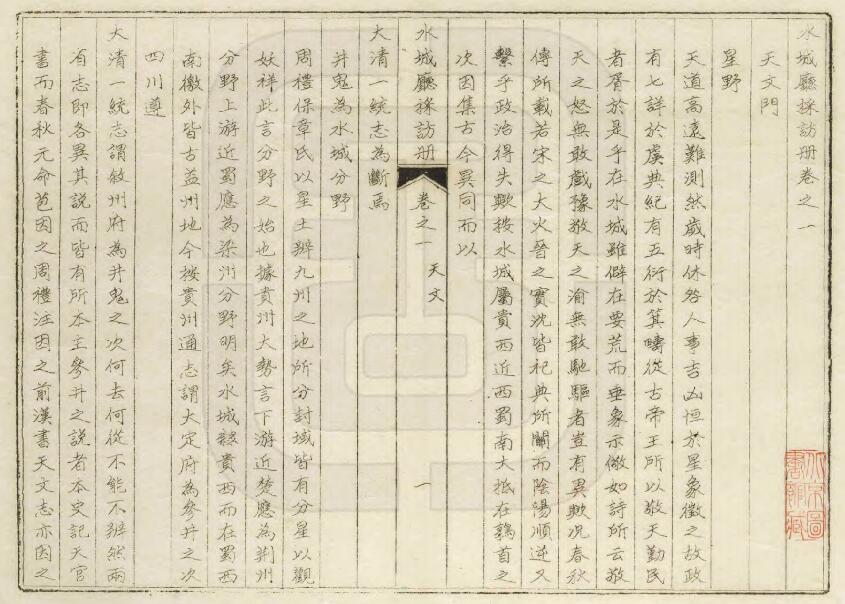 水城廳採訪册卷之一
天文門
星野
天道高遠難測然歲時休咎人事吉凶恒於星象徵之故政
有七詳於虞典紀有五衍於箕疇從古帝王所以敬天勤民
者胥於是乎在水城雖僻在要荒而垂象示儆如詩所云敬
天之怒無敢戲豫敬天之渝無敢馳驅者豈有異歟況春秋
傳所載若宋之大火晉之實沈皆祀典所關而陰陽順逆又
繫乎政治得失歟按水城屬貴西近西蜀南大抵在鶉首之
次因集古今異同而以
水城廳採訪册 卷之一 天文 一
大清一統志為斷焉
井鬼為水城分野
周禮保章氏以星土辨九州之地所分封域皆有分星以觀
妖祥此言分野之始也據貴州大勢言下游近楚應為荆州
分野上游近蜀應為梁州分野明矣水城隸貴西而在蜀西
南徼外皆古益州地今按貴州通志謂大定府為參井之次
四川遵
大清一統志謂敘州府為井鬼之次何去何從不能不辨然兩
省志即各異其說而皆有所本主參井之說者本史記天官
書而春秋元命苞因之周禮注因之前漢書天文志亦因之